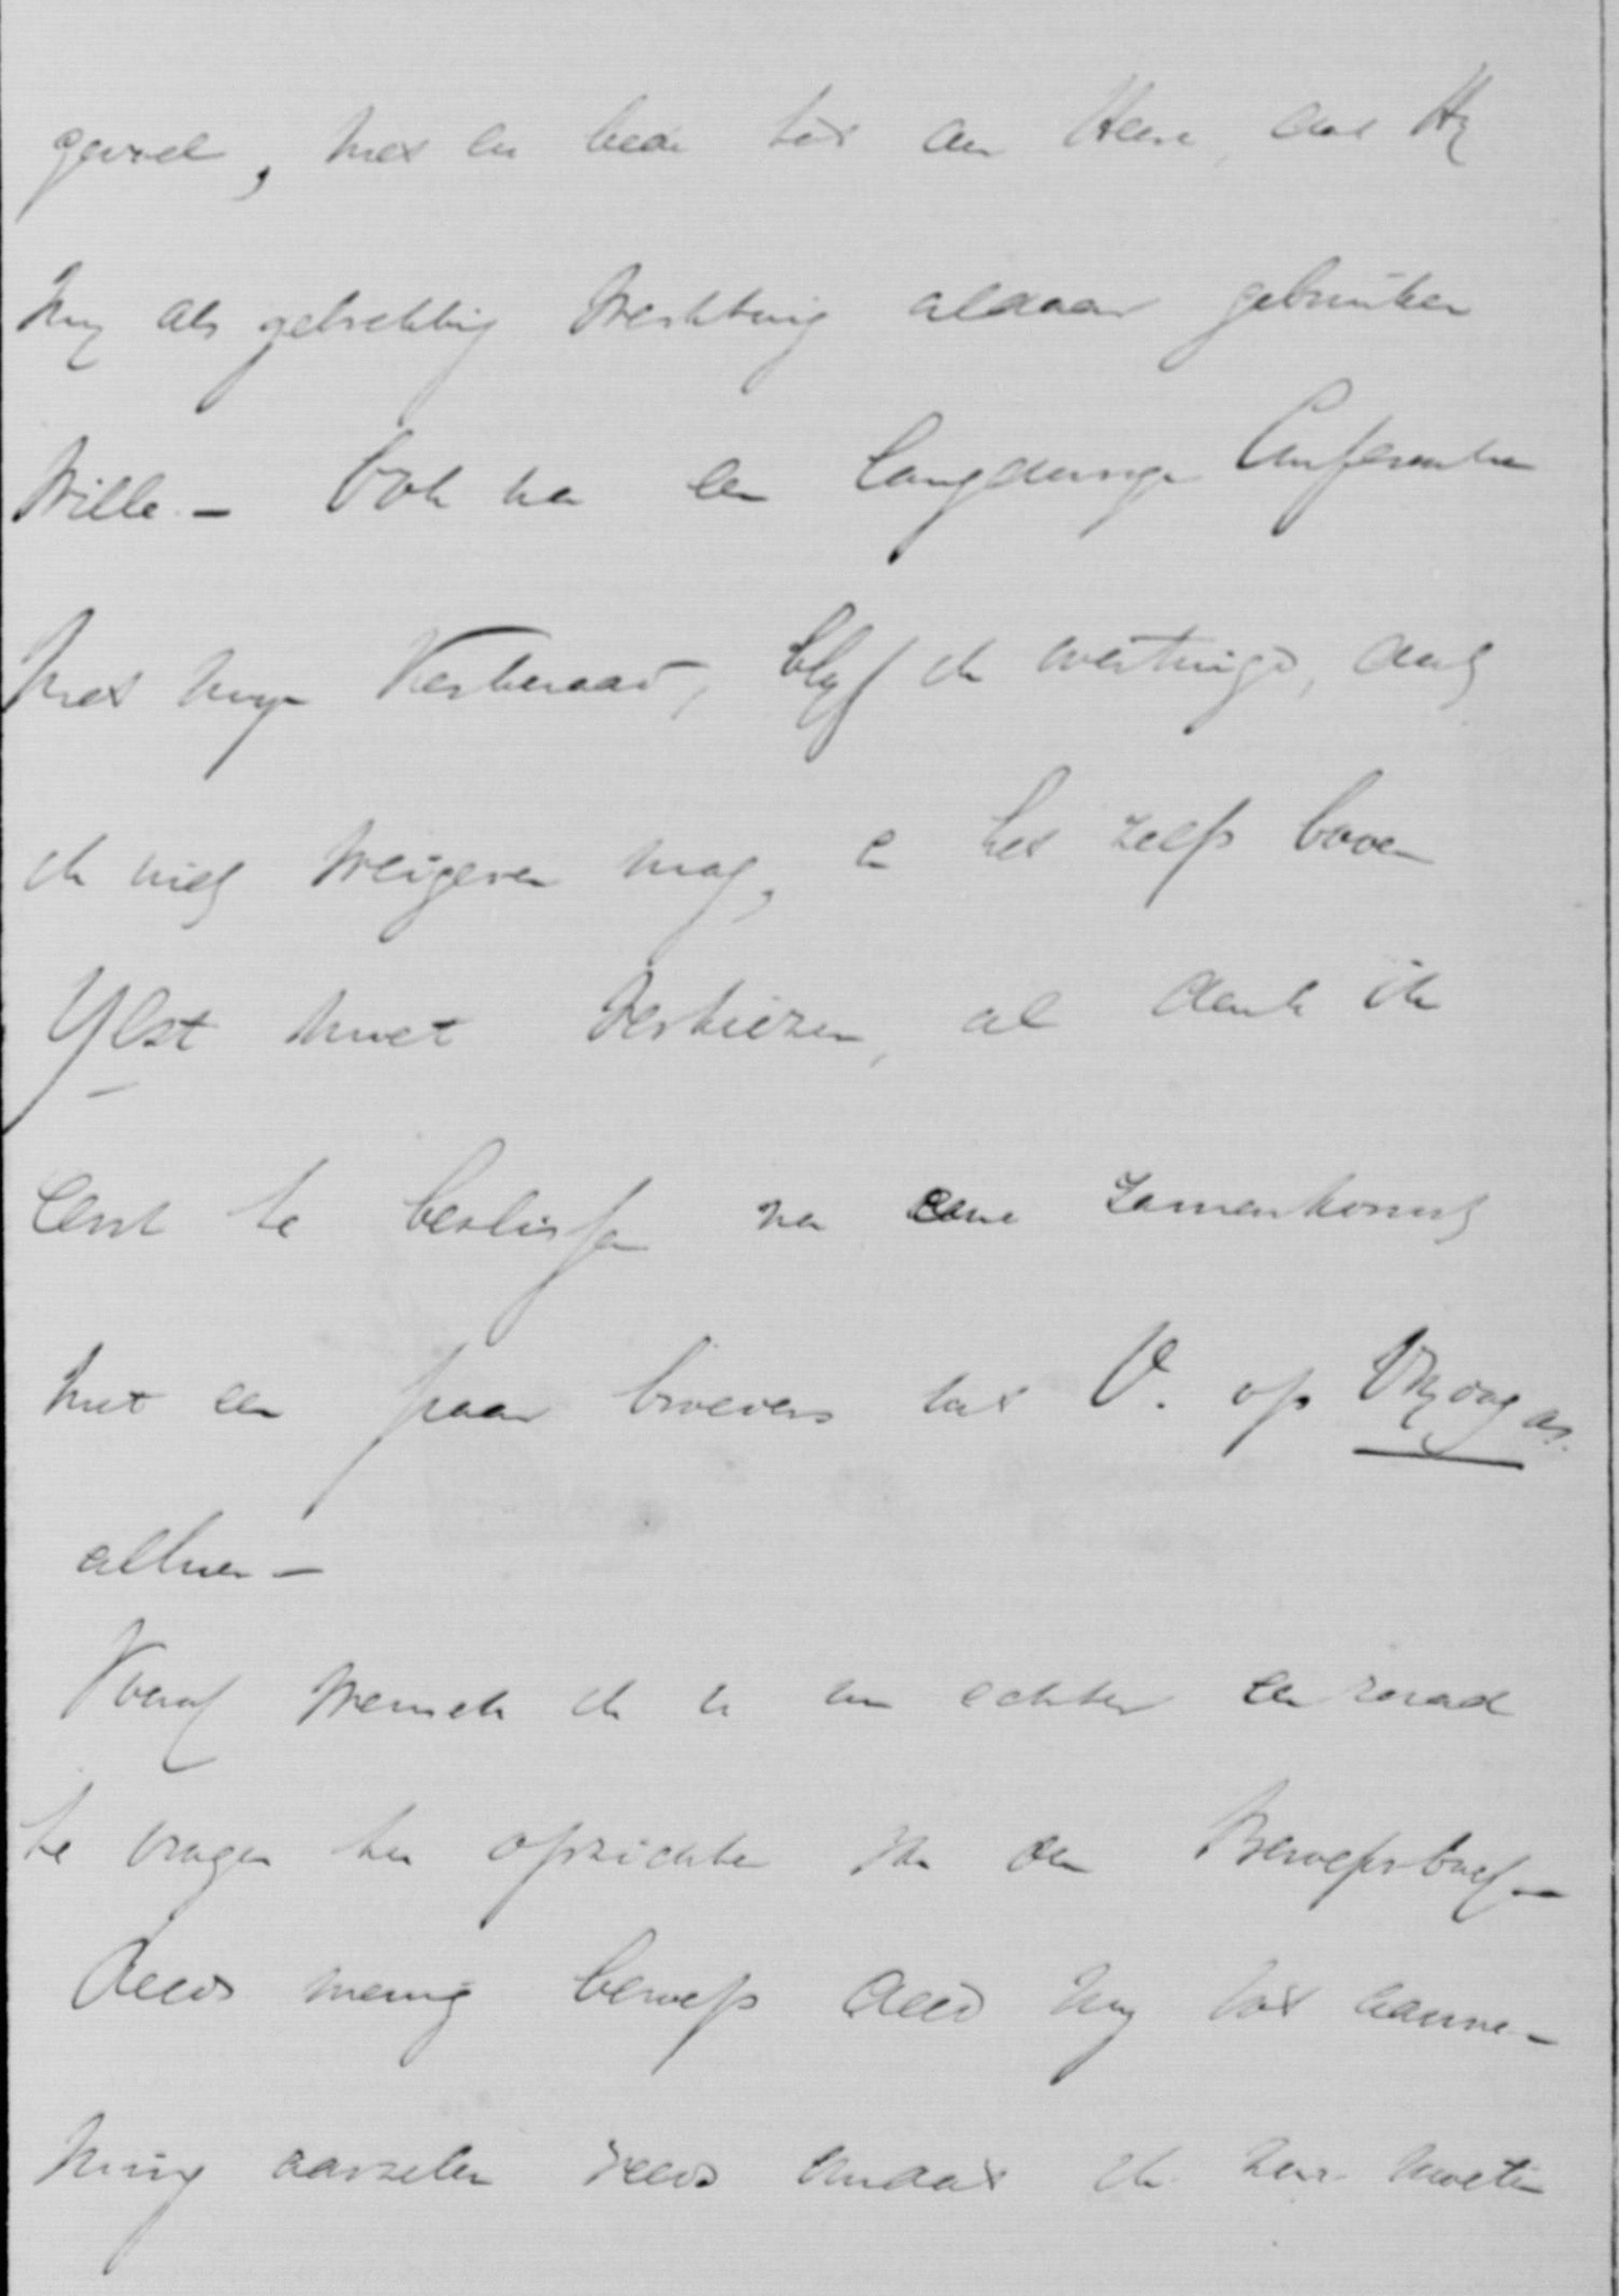 gevoel, met een bede tot den Heere, dat Hy
my als gebrekkig werktuig aldaar gebruiken
wille. - Ook na een langdurige Conferentie
met mijn Kerkeraad, blyf ik overtuigd, dat
ik niet weigeren mag, en het zelfs boven
Ylst moet verkiezen, al denk ik
eerst te beslissen na eene zamenkomst
met een paar broeders uit V. op Vrydag as.
alhier -
Vooraf wensch ik U om echter een raad
te vragen ten opzichte van den Beroepsbrief. -
Reeds menig beroep deed my tot aanne-
ming aarzelen reeds omdat ik zou moeten